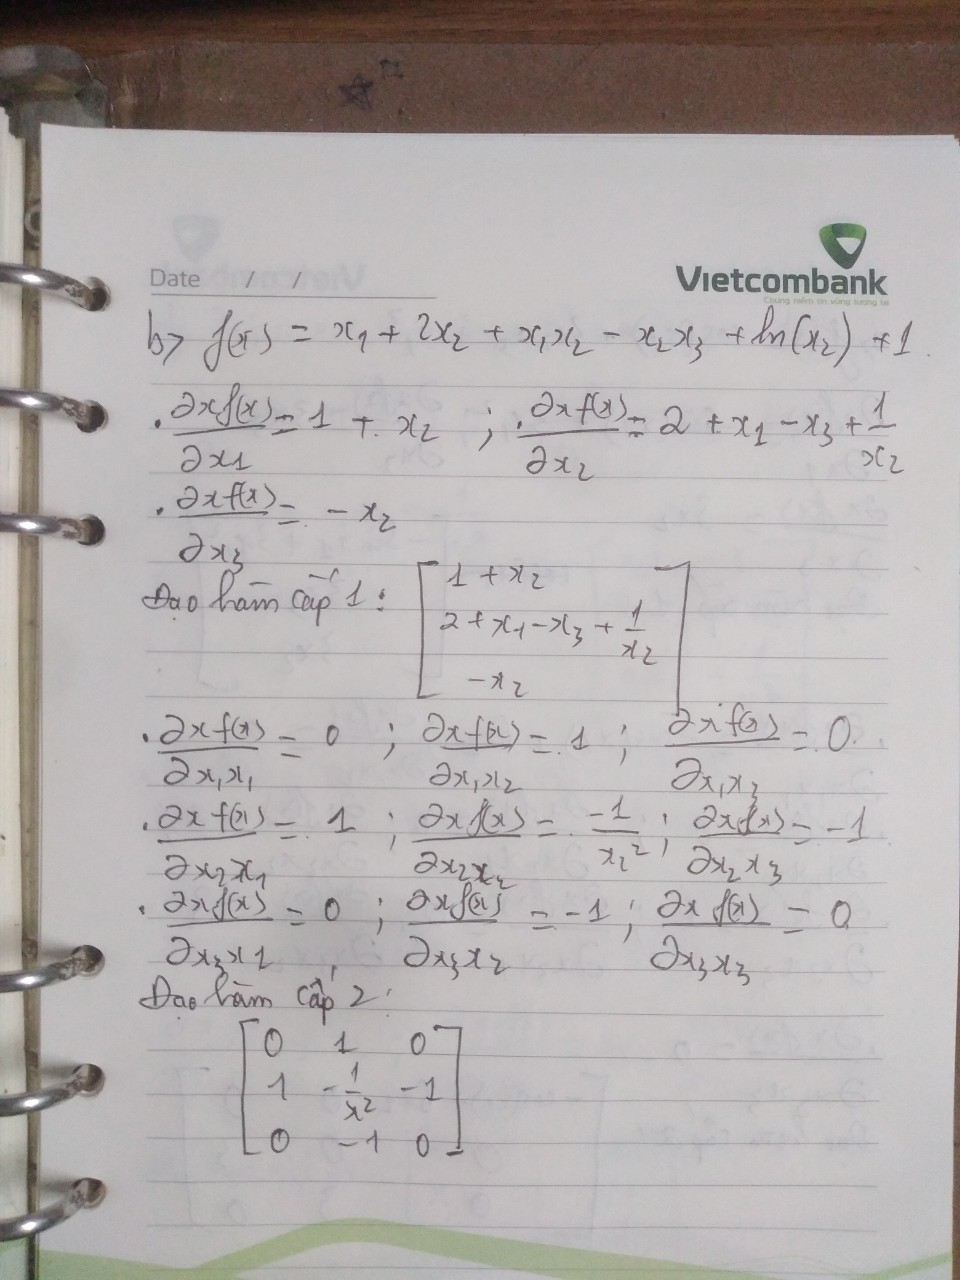 Date / /
Vietcombank
Chung niềm tin vững tương lai
b> f(x) = x₁ + 2x₂ + x₁x₂ - x₂x₃ + ln(x₂) + 1.
. ∂xf(x)/∂x1 = 1 + x₂ ; . ∂xf(x)/∂x₂ = 2 + x₁ - x₃ + 1/x₂
. ∂xf(x)/∂x₃ = - x₂
Đạo hàm cấp 1 : [ 1 + x₂
2 + x₁ - x₃ + 1/x₂
-x₂ ]
. ∂xf(x)/∂x₁x₁ = 0 ; ∂xf(x)/∂x₁x₂ = 1 ; ∂xf(x)/∂x₁x₃ = 0.
. ∂xf(x)/∂x₂x₁ = 1 ; ∂xf(x)/∂x₂x₂ = -1/x₂² ; ∂xf(x)/∂x₂x₃ = -1
. ∂xf(x)/∂x₃x1 = 0 ; ∂xf(x)/∂x₃x₂ = -1 ; ∂xf(x)/∂x₃x₃ = 0
Đạo hàm cấp 2 :
[ 0 1 0
1 -1/x² -1
0 -1 0 ]